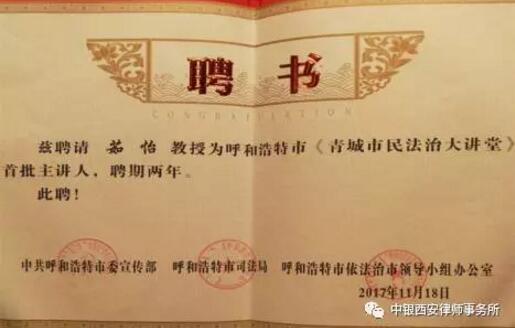 聘书
CONGRATULATION
兹聘请 茹怡 教授为呼和浩特市《青城市民法治大讲堂》
首批主讲人，聘期两年。
此聘！
中共呼和浩特市委宣传部 呼和浩特市司法局 呼和浩特市依法治市领导小组办公室
2017年11月18日
中银西安律师事务所